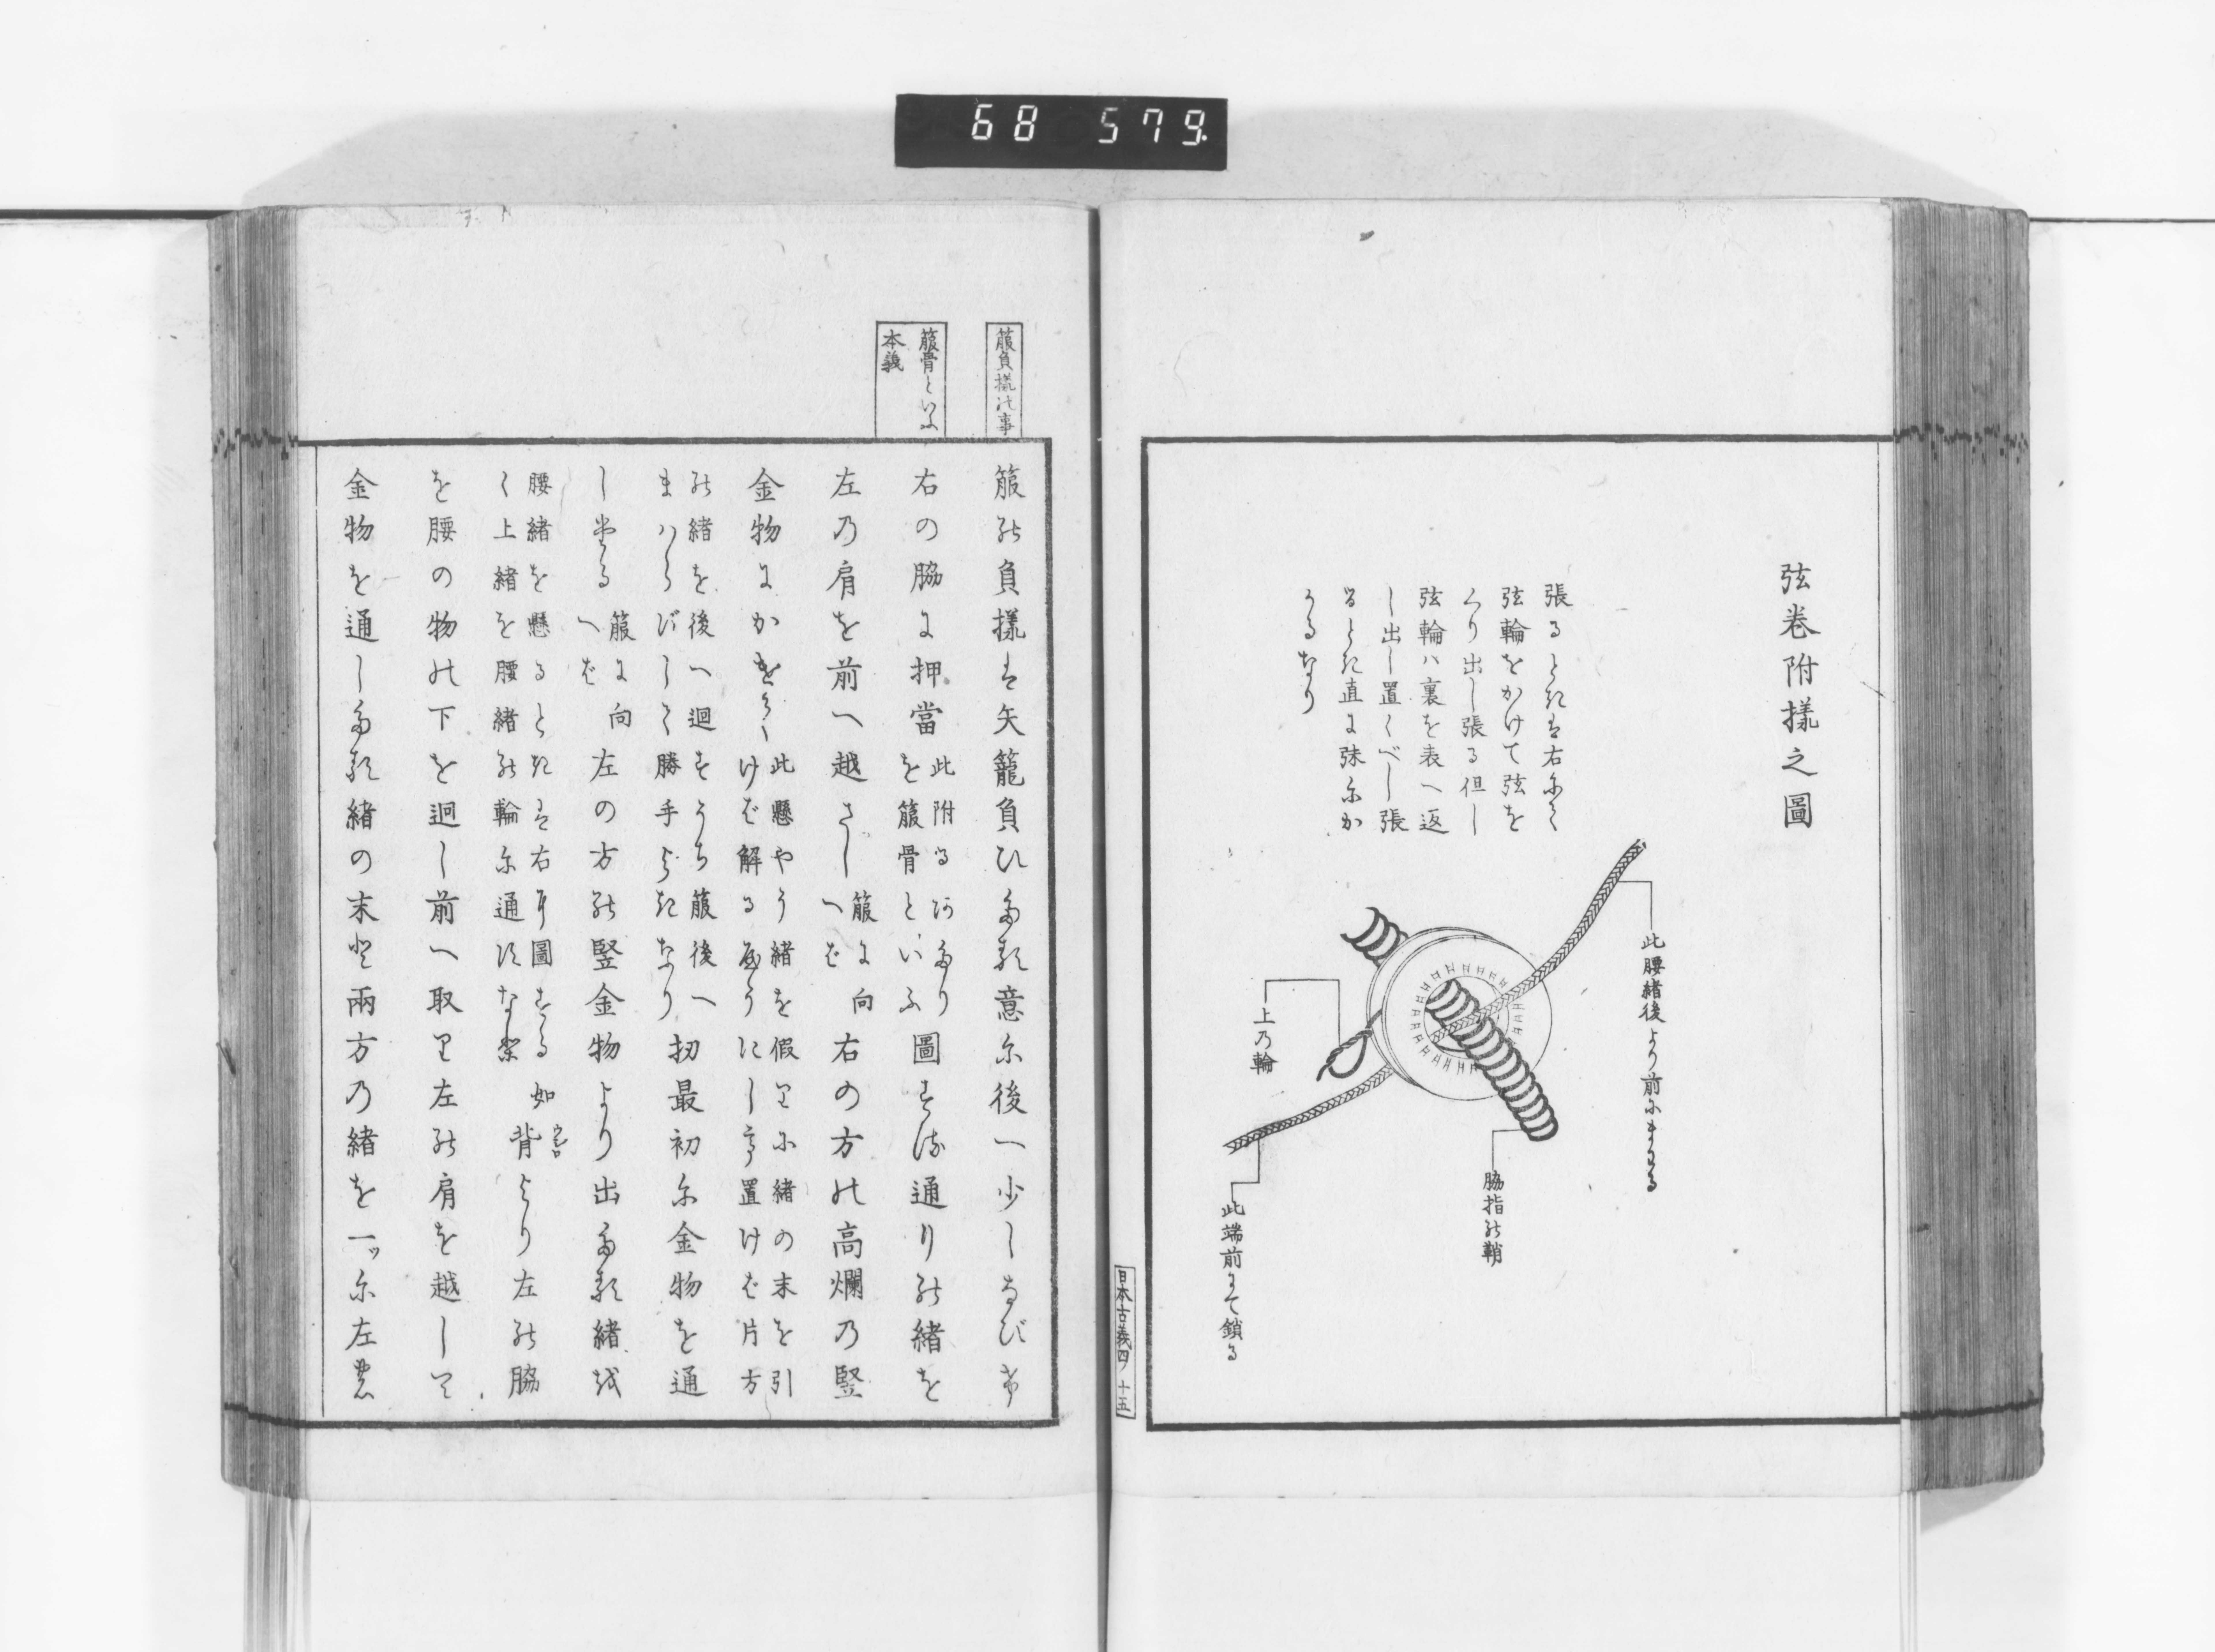 68 579
弦巻附様之圖
張るときは右にて
弦輪をかけて弦を
くり出し張る但し
弦輪ハ裏を表へ返
し出し置くべし張
るとき直に弭にか
うるなり
此腰緒後より前にまわる
脇指の鞘
上乃輪
此端前にて鎖る
日本古義四 十五
箙負様の事
箙骨といふ
本義
箙の負様は矢籠負ひたる意に後へ少しなびけ
右の脇に押當
此附るあたり
を箙骨といふ
圖する通りの緒を
左乃肩を前へ越さし
箙に向
へば
右の方の高爛乃竪
金物にかけ
此懸やう緒を假りに緒の末を引
けば解るやうにし置けば片方
の緒を後へ迴すうち箙後へ
まハらびして勝手よきなり
扨最初に金物を通
したる
箙に向
へば
左の方の竪金物より出たる緒を
腰緒を懸るときは右の圖する如
く上緒を腰緒の輪に通すなり
背より左の脇
を腰の物の下を迴し前へ取り左の肩を越して
金物を通したる緒の末と兩方乃緒を一ッに左の